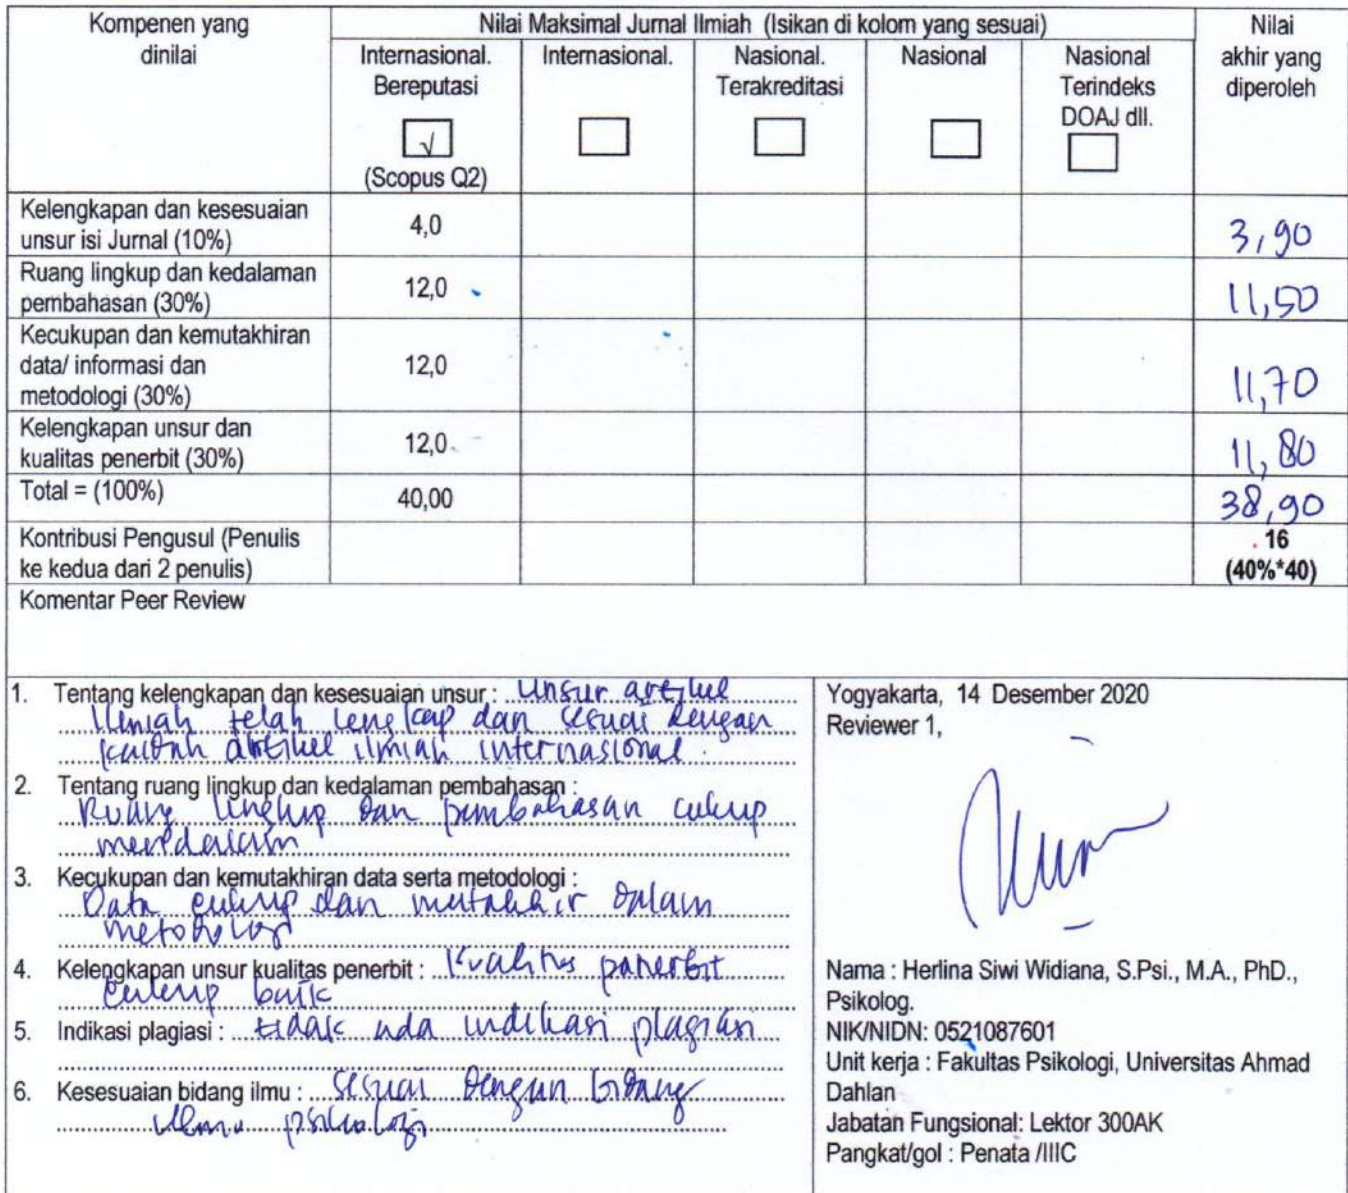 Kompenen yang dinilai
Nilai Maksimal Jurnal Ilmiah (Isikan di kolom yang sesuai)
Nilai akhir yang diperoleh
Internasional. Bereputasi
√
(Scopus Q2)
Internasional.
Nasional. Terakreditasi
Nasional
Nasional Terindeks DOAJ dll.
Kelengkapan dan kesesuaian
unsur isi Jurnal (10%)
4,0
3,90
Ruang lingkup dan kedalaman
pembahasan (30%)
12,0
11,50
Kecukupan dan kemutakhiran
data/ informasi dan
metodologi (30%)
12,0
11,70
Kelengkapan unsur dan
kualitas penerbit (30%)
12,0
11,80
Total = (100%)
40,00
38,90
Kontribusi Pengusul (Penulis
ke kedua dari 2 penulis)
16
(40%*40)
Komentar Peer Review
1. Tentang kelengkapan dan kesesuaian unsur : Unsur artikel
ilmiah telah lengkap dan sesuai dengan
kaidah artikel ilmiah internasional.
2. Tentang ruang lingkup dan kedalaman pembahasan :
Ruang lingkup dan pembahasan cukup
mendalam
3. Kecukupan dan kemutakhiran data serta metodologi :
Data cukup dan mutakhir dalam
metodologi
4. Kelengkapan unsur kualitas penerbit : Kualitas penerbit
cukup baik
5. Indikasi plagiasi : tidak ada indikasi plagiasi
6. Kesesuaian bidang ilmu : sesuai dengan bidang
ilmu psikologi
Yogyakarta, 14 Desember 2020
Reviewer 1,
Nama : Herlina Siwi Widiana, S.Psi., M.A., PhD.,
Psikolog.
NIK/NIDN: 0521087601
Unit kerja : Fakultas Psikologi, Universitas Ahmad
Dahlan
Jabatan Fungsional: Lektor 300AK
Pangkat/gol : Penata /IIIC